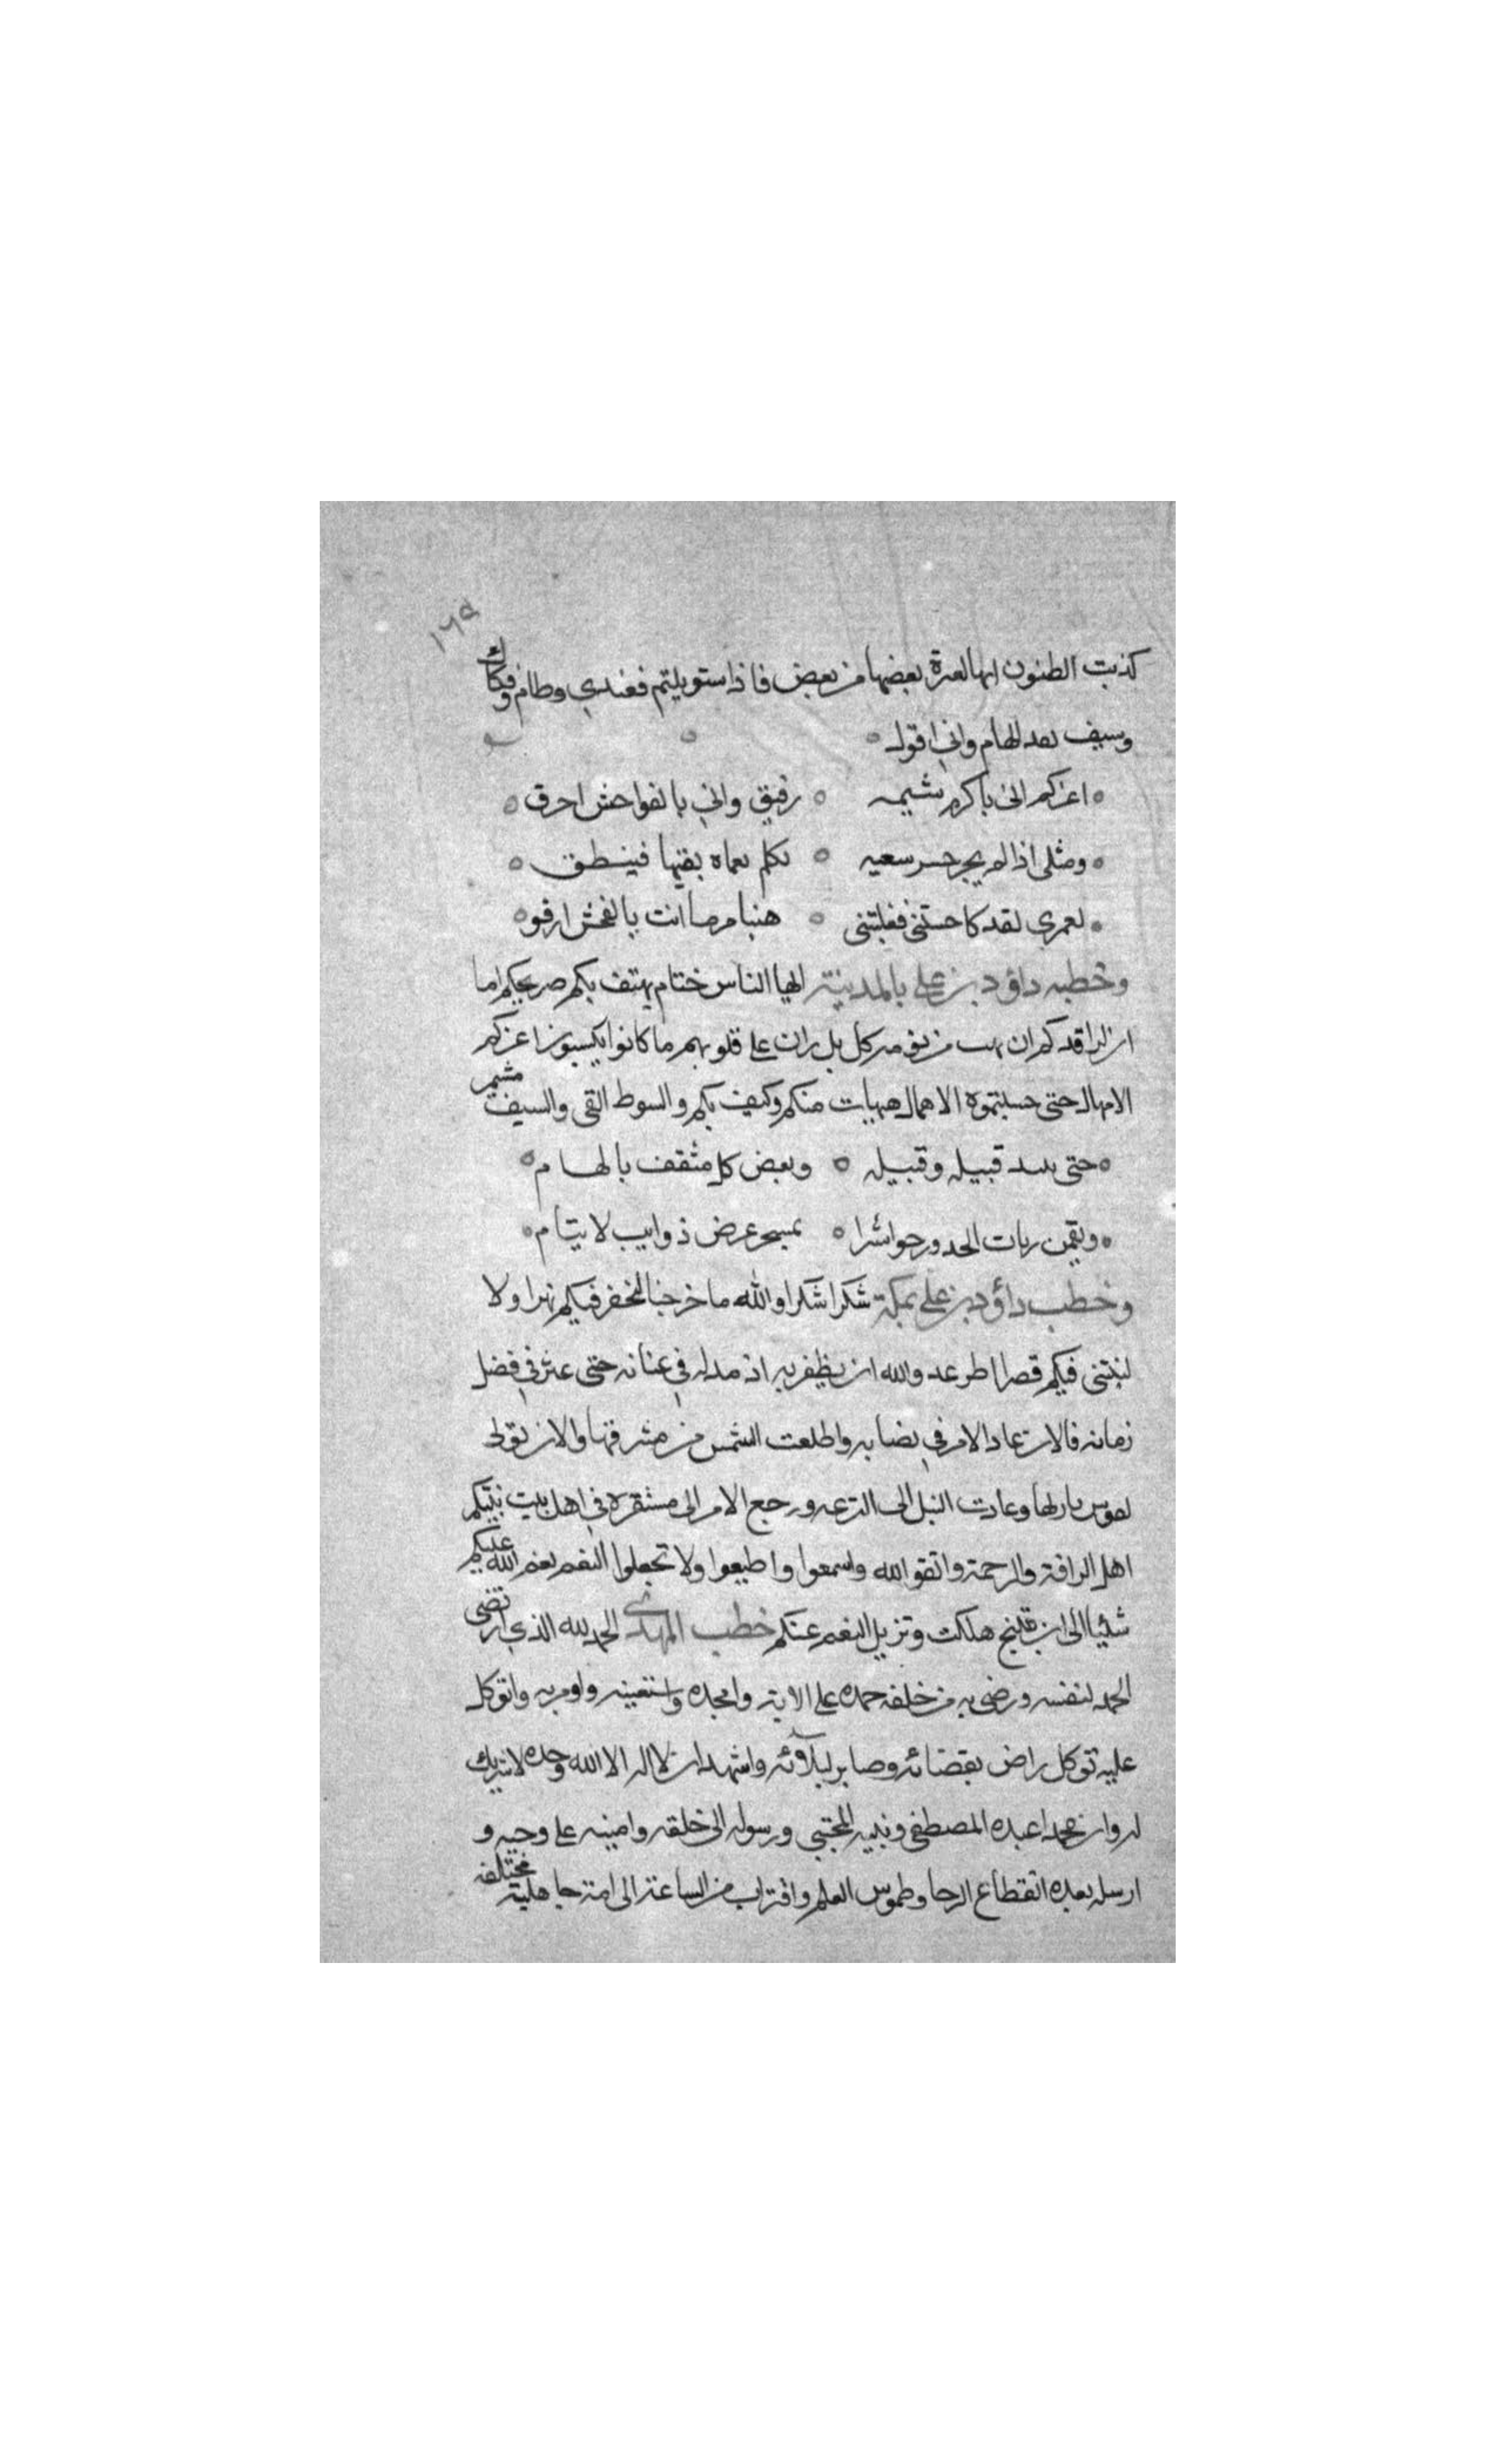 ١٦٩
كذبت الظنون انها لعترة بعضها من بعض فاذا استوبلتم فعندي وطام وفكاك
وسيف بعد الهام واني اقول
اعزكم اني باكرم شيمه رفيق واني بالفواحش احرق
ومثلى اذا لم يجز حسن سعيه تكلم نعماه بفيها فينطق
لعمري لقد كاحستنى فغلبتنى هنبا مرحا انت بالفحش ارفو
وخطبه داؤد بن على بالمدينة ايها الناس ختام يهتف بكم صريحكم اما
ان لراقدكم ان يهب من نومه كل بل ران على قلوبهم ما كانوا يكسبون اعزكم
الامهال حتى حسبتموه الاهمال هيهات منكم وكيف بكم والسوط القى والسيف مشهر
حتى قبيله وقبيله وبعض كل مثقف بالهام
ويقمن ربات الخدور حواشرا بمسحن عرض ذوايب لايتام
وخطب داؤد بن على بمكة شكرا شكرا والله ما خرجنا لنحفر فيكم نهرا ولا
لنبتنى فيكم قصرا والله ان يظفر به اذ مد له في عنانه حتى عثر في فضل
زمانه فالان عاد الامر في نصابه واطلعت الشمس من مشرقها والان تولى
لقوس باريها وعادت النبل الى النزعه ورجع الامر الى مستقره في اهل بيت نبيكم
اهل الرافة والرحمة واتقو الله واسمعوا واطيعوا ولا تجعلوا النعم نعم الله عليكم
شئيا الى ان هلكت وتزيل النعم عنكم خطب المهدى الحمد لله الذي ارتضى
الحمد لنفسه ورضى به من خلقه حمده على الايه وامجده واستعينه واومن به واتوكل
عليه توكل راض بقضائه وصابر لبلاؤئه واشهد ان لا اله الا الله وحده لا شريك
له وان محمدا عبده المصطفى ونبيه المجتبى ورسوله الى خلقه وامينه على وحيه و
ارسله بعده انقطاع الرجا وطموس العلم واقتراب من الساعة الى امة جاهلية مختلفه